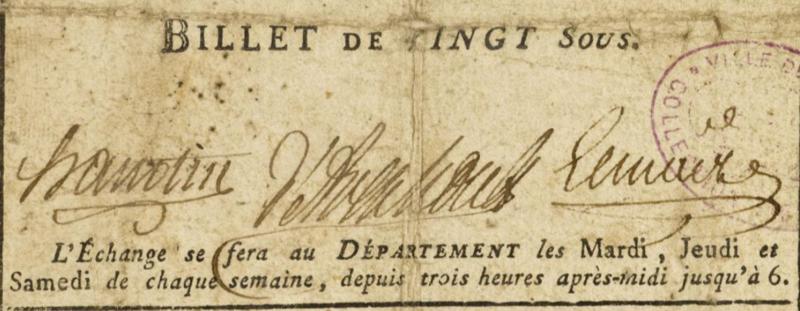 BILLET DE VINGT SOUS.
VILLE DE
COLLE
Lemaire
L'Échange se fera au DÉPARTEMENT les Mardi, Jeudi et
Samedi de chaque semaine, depuis trois heures après-midi jusqu'à 6.